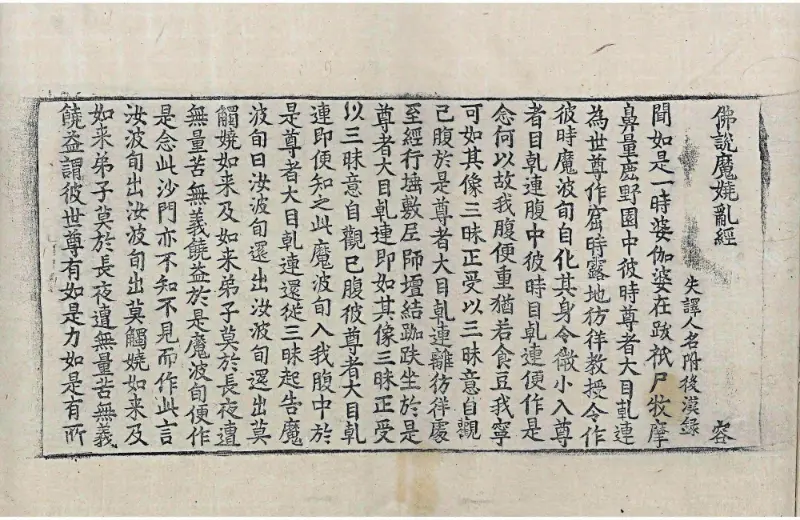 佛說魔嬈亂經　容
失譯人名附後漢錄
聞如是一時婆伽婆在跋祇尸牧摩
鼻量鹿野園中彼時尊者大目乹連
為世尊作窟時露地彷徉教授令作
彼時魔波旬自化其身令微小入尊
者目乹連腹中彼時目乹連便作是
念何以故我腹便重猶若食豆我寧
可如其像三昧正受以三昧意自觀
己腹於是尊者大目乹連離彷徉處
至經行壛敷尼師壇結跏趺坐於是
尊者大目乹連即如其像三昧正受
以三昧意自觀己腹彼尊者大目乹
連即便知之此魔波旬入我腹中於
是尊者大目乹連還從三昧起告魔
波旬曰汝波旬還出汝波旬還出莫
觸嬈如来及如来弟子莫於長夜遭
無量苦無義饒益於是魔波旬便作
是念此沙門亦不知不見而作此言
汝波旬出汝波旬出莫觸嬈如来及
如来弟子莫於長夜遭無量苦無義
饒益謂彼世尊有如是力如是有所